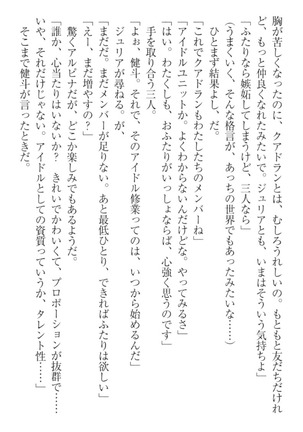 胸が苦しくなったのに、クアドランとは、むしろうれしいの。もともと友だちだけれ
ど、もっと仲良くなれたみたいで。ジュリアとも、いまはそういう気持ちよ」
「ふたりなら嫉妬してしまうけど、三人なら」
（うまくいく、そんな格言が、あっちの世界でもあったみたいな……）
ひとまず結果よし、だ。
「これでクアドランもわたしたちのメンバーね」
「アイドルユニットか。よくわからないんだけどな。やってみるさ」
「はい。わたくしも、おふたりがいっしょならば、心強く思うのです」
手を取り合う三人。
「よぉ、健斗。それで、そのアイドル修業ってのは、いつから始めるんだ」
ジュリアが尋ねる。が、
「まだだ。まだメンバーが足りない。あと最低ひとり、できればふたりは欲しい」
「えー、まだ増やすの？」
驚くアルビナだが、どこか楽しみでもあるようだ。
「誰か、心当たりはないか？　きれいでかわいくて、プロポーションが抜群で……
いや、それだけじゃない。アイドルとしての資質っていうか、タレント性……」
そこまで健斗が言ったときだ。